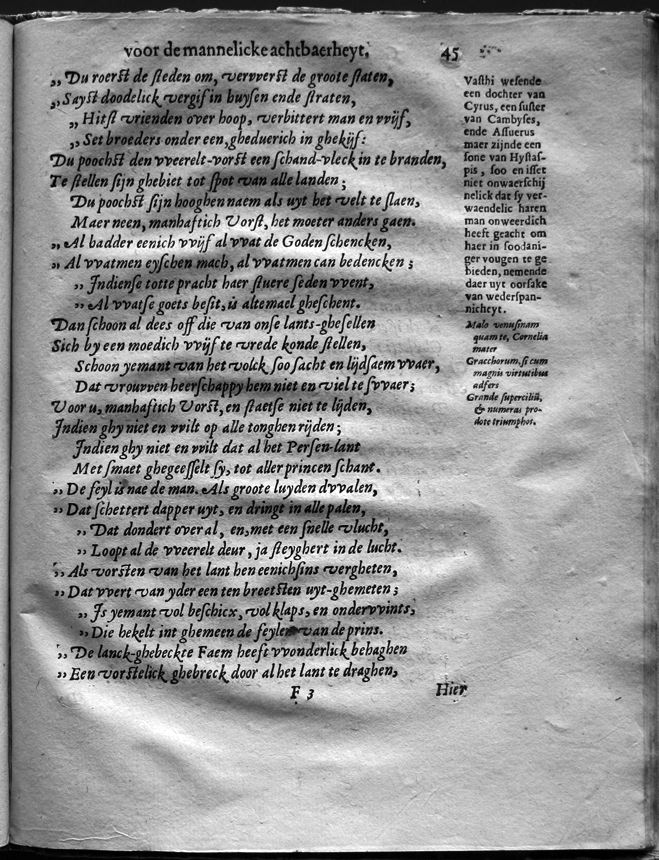 voor de mannelicke achtbaerheyt. 45
„ Du roerst de steden om, ververst de groote staten,
„ Sayst doodelick vergif in huysen ende straten,
„ Hitst vrienden over hoop, verbittert man en vvijf,
„ Set broeders onder een, gheduerich in ghekijf:
Du poochst den vveerelt-vorst een schand-vleck in te branden,
Te stellen sijn ghebiet tot spot van alle landen;
Du poochst sijn hooghen naem als uyt het velt te slaen,
Maer neen, manhaftich Vorst, het moeter anders gaen.
„ Al hadder eenich vvijf al vvat de Goden schencken,
„ Al vvatmen eyschen mach, al vvatmen can bedencken;
„ Indiense totte pracht haer stuere seden vvent,
„ Al vvatse goets besit, is altemael gheschent.
Dan schoon al dees off die van onse lants-ghesellen
Sich by een moedich vvijf te vrede konde stellen,
Schoon yemant van het volck soo sacht en lijdsaem vvaer,
Dat vrouvven heerschappy hem niet en viel te svvaer;
Voor u, manhaftich Vorst, en staetse niet te lijden,
Indien ghy niet en vvilt op alle tonghen rijden;
Indien ghy niet en vvilt dat al het Persen-lant
Met smaet ghegeesselt sy, tot aller princen schant.
„ De feyl is nae de man. Als groote luyden dvvalen,
„ Dat schettert dapper uyt, en dringt in alle palen,
„ Dat dondert over al, en, met een snelle vlucht,
„ Loopt al de vveerelt deur, ja steyghert in de lucht.
„ Als vorsten van het lant hen eenichsins vergheten,
„ Dat vvert van yder een ten breetsten uyt-ghemeten;
„ Is yemant vol beschicx, vol klaps, en ondervvints,
„ Die hekelt int ghemeen de feylen van de prins.
„ De lanck-ghebeckte Faem heeft vvonderlick behaghen
„ Een vorstelick ghebreck door al het lant te draghen,
F 3 Hier
Vasthi wesende
een dochter van
Cyrus, een suster
van Cambyses,
ende Assuerus
maer zijnde een
sone van Hystas-
pis, soo en isset
niet onwaerschij
nelick dat sy ver-
waendelic haren
man onweerdich
heeft geacht om
haer in soodani-
ger vougen te ge
bieden, nemende
daer uyt oorsake
van wederspan-
nicheyt.
Malo venusinam
quam te, Cornelia
mater
Gracchorum, si cum
magnis virtutibus
adfers
Grande supercilii,
& numeras pro-
dote triumphos.